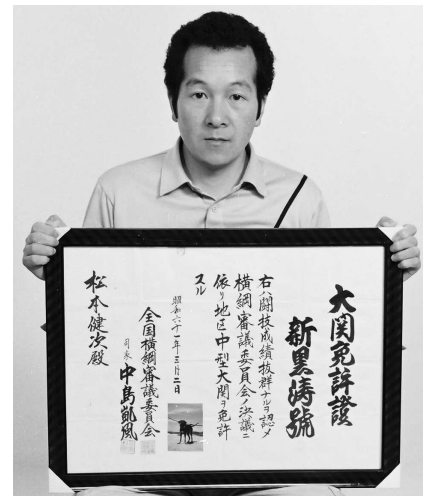 大関免許證
新黒涛號
右ハ闘技成績抜群ナルヲ認メ
横綱審議委員会ノ決議ニ
依リ地区中型大関ヲ免許
スル
昭和六十一年三月二日
全国横綱審議委員会
中島凱風
松本健次殿